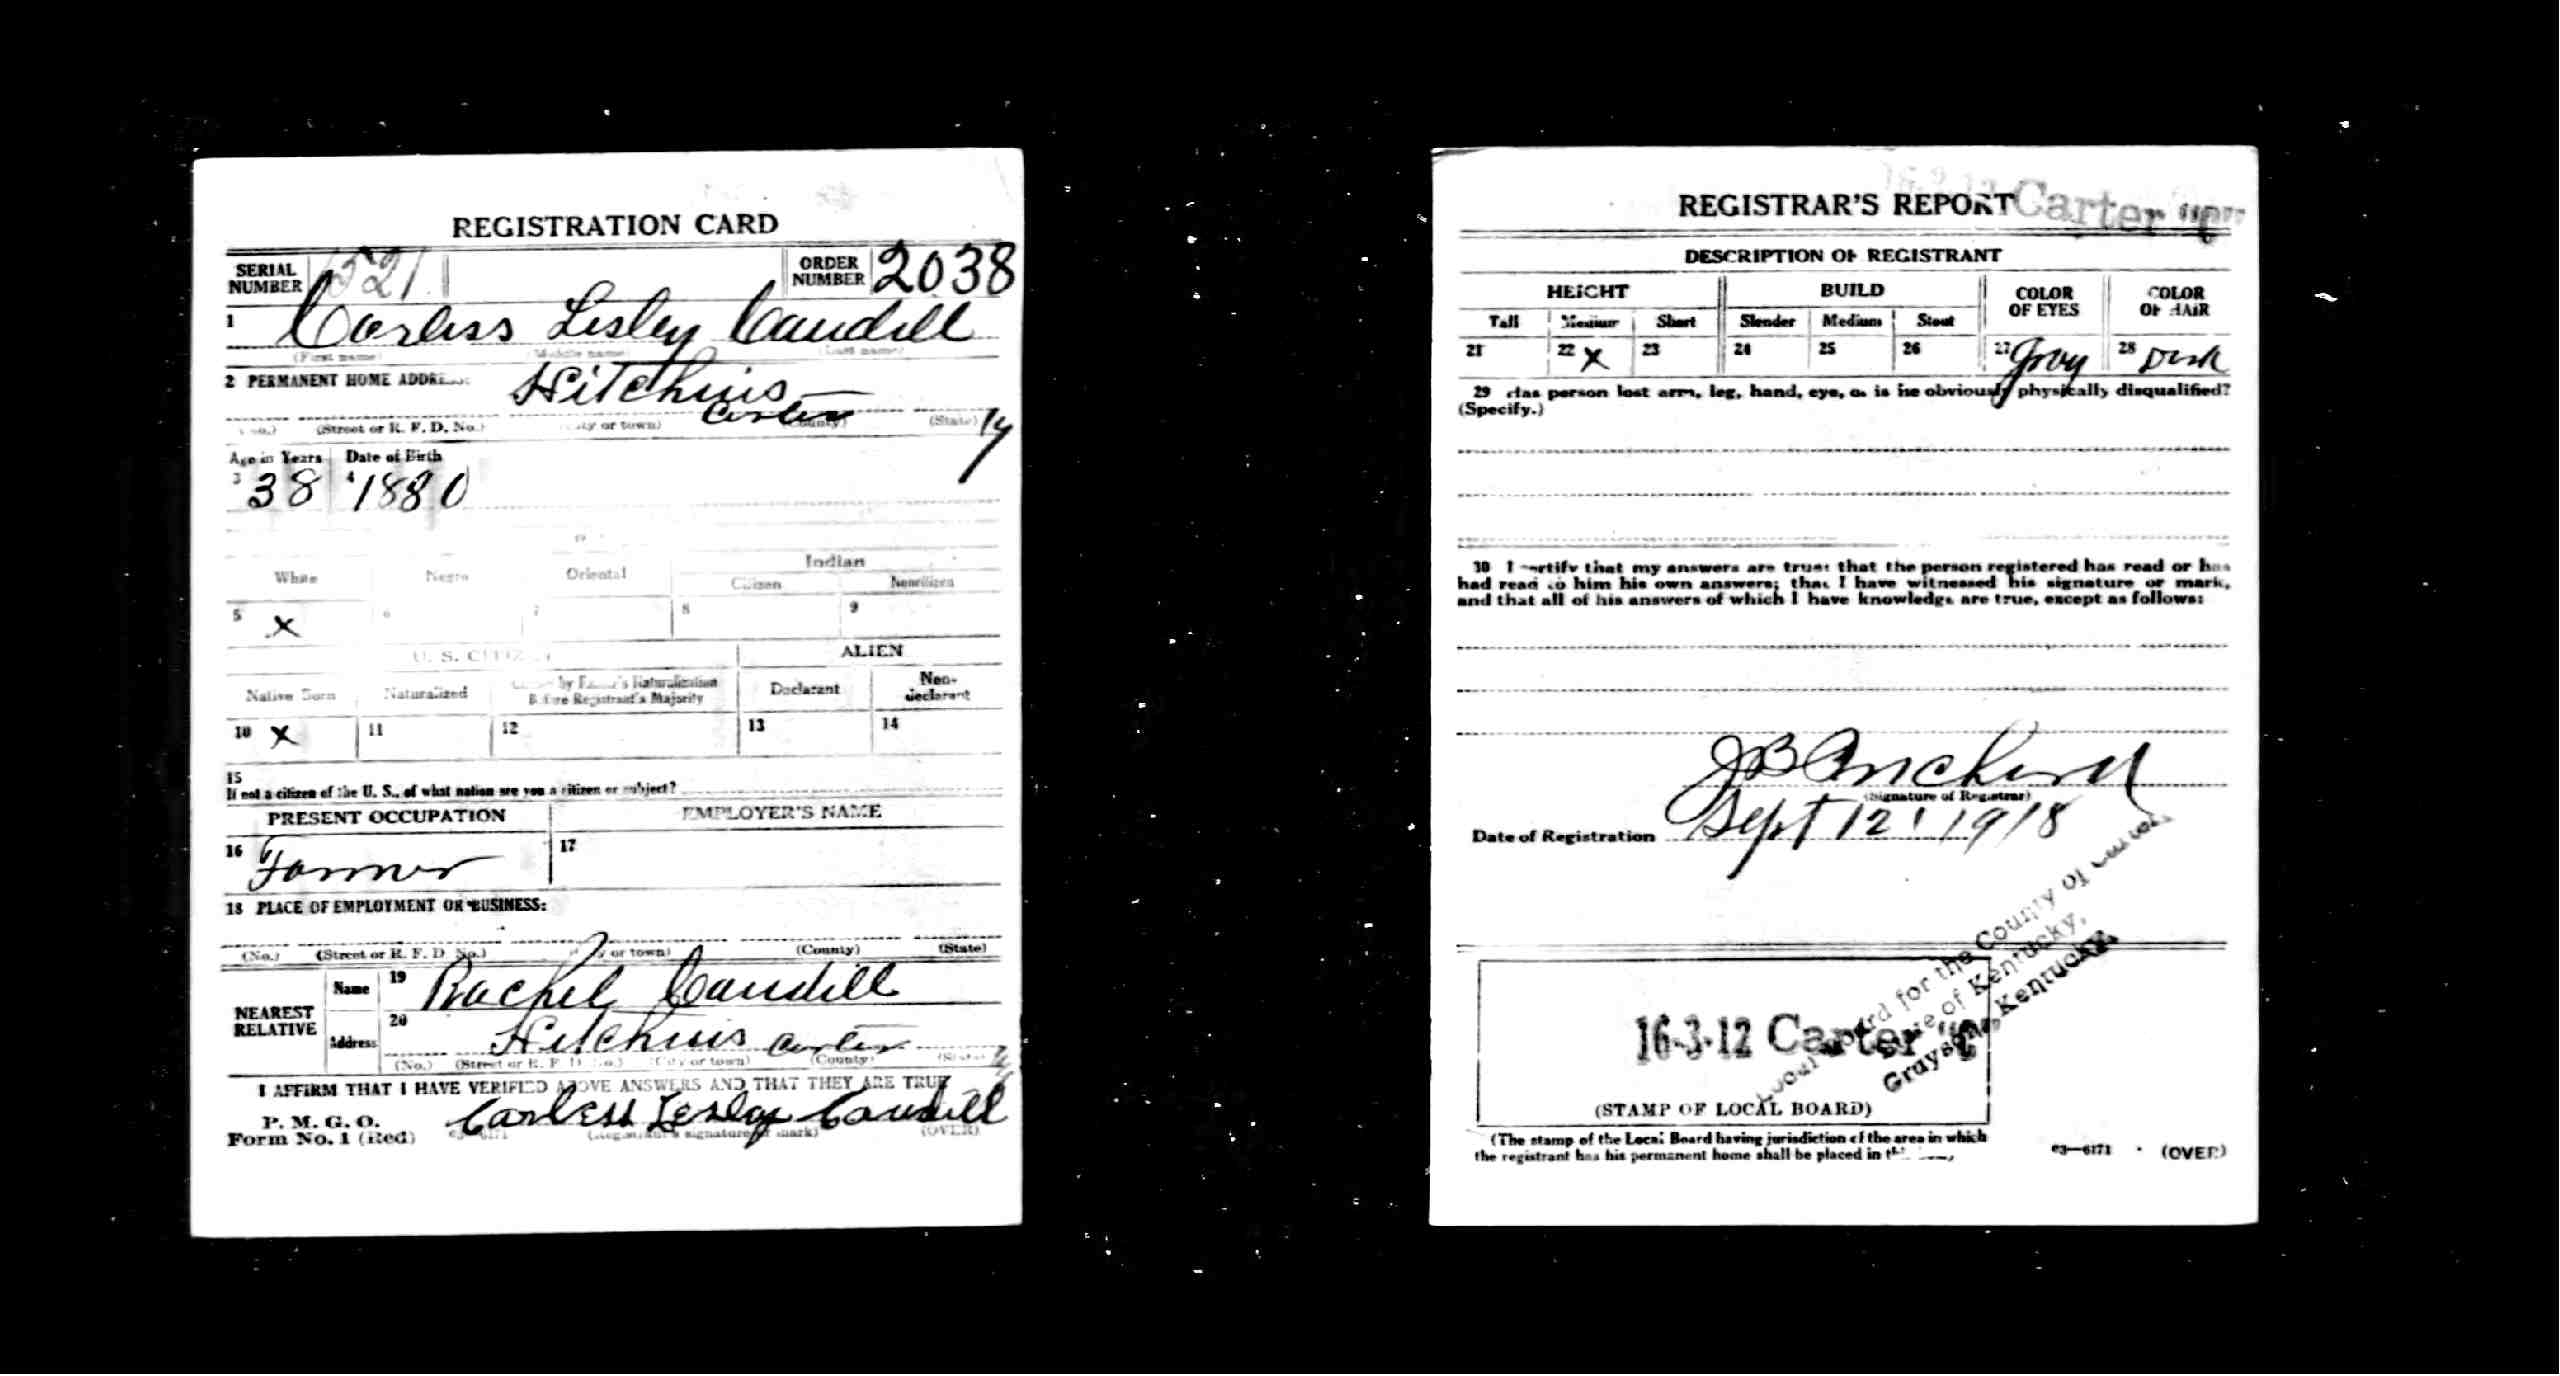 REGISTRATION CARD
SERIAL NUMBER 1521 ORDER NUMBER 2038
1 Corliss Lesley Caudill
(First name) (Middle name) (Last name)
2 PERMANENT HOME ADDRESS: Hitchins Carter Ky
(No.) (Street or R. F. D. No.) (City or town) (County) (State)
Age in Years Date of Birth
3 38 4 1880
White Negro Oriental Indian
Citizen Noncitizen
5 X 6 7 8 9
U. S. CITIZEN ALIEN
Native Born Naturalized Citizen by Father's Naturalization Before Registrant's Majority Declarant Non-declarant
10 X 11 12 13 14
15
If not a citizen of the U. S., of what nation are you a citizen or subject?
PRESENT OCCUPATION EMPLOYER'S NAME
16 Farmer 17
18 PLACE OF EMPLOYMENT OR BUSINESS:
(No.) (Street or R. F. D. No.) (City or town) (County) (State)
NEAREST RELATIVE Name 19 Rachel Caudill
Address 20 Hitchins Carter Ky
(No.) (Street or R. F. D. No.) (City or town) (County) (State)
I AFFIRM THAT I HAVE VERIFIED ABOVE ANSWERS AND THAT THEY ARE TRUE
P. M. G. O.
Form No. 1 (Red) 03-6171 Carless Lesley Caudill
(Registrant's signature or mark) (OVER)
16-3-12 Carter "C"
REGISTRAR'S REPORT
DESCRIPTION OF REGISTRANT
HEIGHT BUILD COLOR OF EYES COLOR OF HAIR
Tall Medium Short Slender Medium Stout
21 22 X 23 24 25 26 27 Gray 28 Dark
29 Has person lost arm, leg, hand, eye, or is he obviously physically disqualified?
(Specify.)
30 I certify that my answers are true; that the person registered has read or has
had read to him his own answers; that I have witnessed his signature or mark,
and that all of his answers of which I have knowledge are true, except as follows:
J B
(Signature of Registrar)
Date of Registration Sept 12 1918
Local Board for the County of Carter,
State of Kentucky,
Grayson, Kentucky.
16-3-12 Carter "C"
(STAMP OF LOCAL BOARD)
(The stamp of the Local Board having jurisdiction of the area in which
the registrant has his permanent home shall be placed in this box.)
03—6171 (OVER)